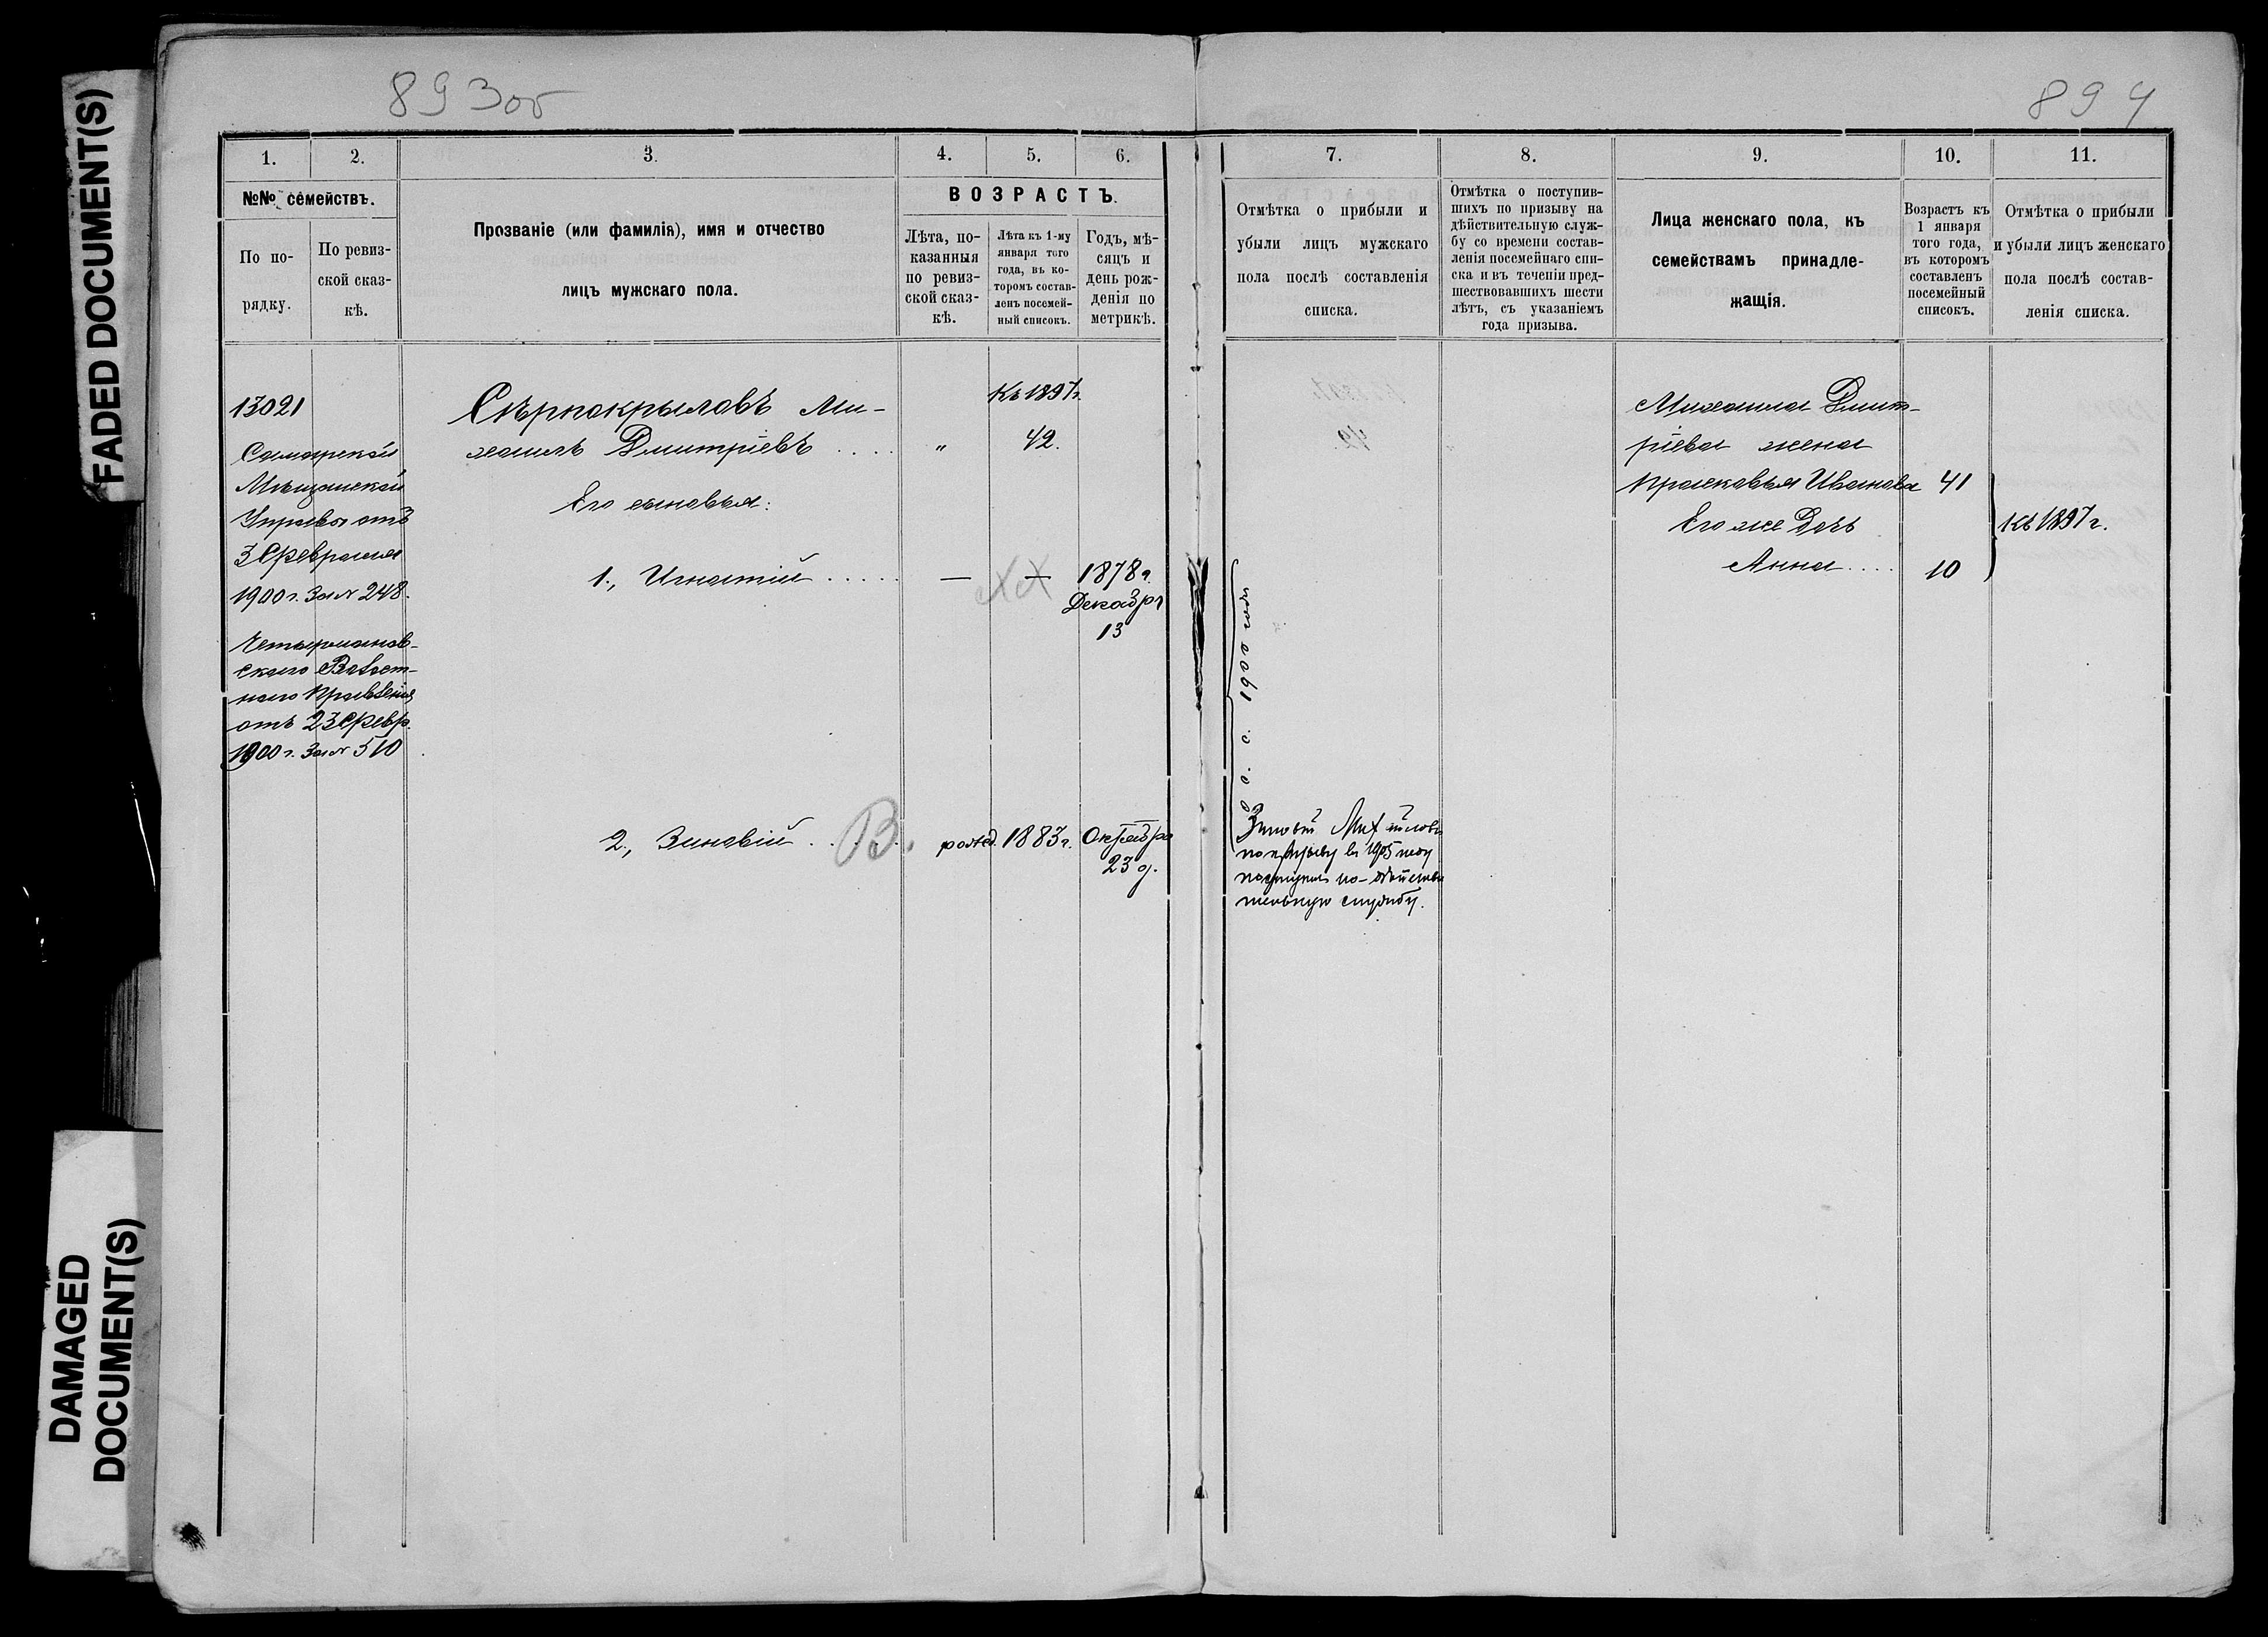 FADED DOCUMENT(S)
DAMAGED
DOCUMENT(S)
893об
1.
2.
3.
4.
5.
6.
№№ семействъ.
По по-
рядку.
По ревиз-
ской сказ-
кѣ.
Прозваніе (или фамилія), имя и отчество
лицъ мужскаго пола.
ВОЗРАСТЪ.
Лѣта, по-
казанныя
по ревиз-
ской сказ-
кѣ.
Лѣта къ 1-му
января того
года, въ ко-
торомъ состав-
ленъ посемей-
ный списокъ.
Годъ, мѣ-
сяцъ и
день рож-
денія по
метрикѣ.
13021
Самарской
Мѣщанской
Управы отъ
3 Февраля
1900 г. За № 248.
скаго Волост-
наго Правленія
отъ 23 Февр.
1900 г. За № 510
Сѣрпокрыловъ Ми-
хаилъ Дмитріевъ . . . .
"
Къ 1897 г.
42.
Его сыновья:
1., Игнатій . . . . .
—
—
1878 г.
Декабря
13
2., Зиновій . . . .
В.
рожд.
1883 г.
Октября
23 д.
894
7.
8.
9.
10.
11.
Отмѣтка о прибыли и
убыли лицъ мужскаго
пола послѣ составленія
списка.
Отмѣтка о поступив-
шихъ по призыву на
дѣйствительную служ-
бу со времени состав-
ленія посемейнаго спи-
ска и въ теченіи пред-
шествовавшихъ шести
лѣтъ, съ указаніемъ
года призыва.
Лица женскаго пола, къ
семействамъ принадле-
жащія.
Возрастъ къ
1 января
того года,
въ которомъ
составленъ
посемейный
списокъ.
Отмѣтка о прибыли
и убыли лицъ женскаго
пола послѣ состав-
ленія списка.
с. 1900 года
Зиновій
по призыву въ 1905 году
поступилъ на дѣйстви
тельную службу.
Михаила Дмит-
ріева жена
Прасковья Иванова
41
Его же Дочь
Анна . . . .
10
Къ 1897 г.